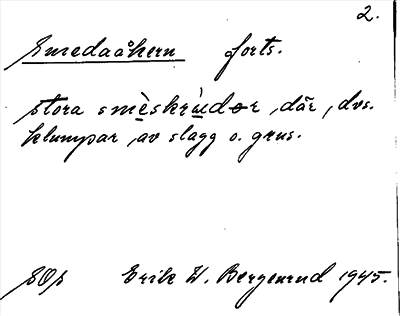 2.
Smedaåkern forts.
stora smèskrùdər, där, dvs.
klumpar, av slagg o. grus.
SOs Erik W. Bergenrud 1945.